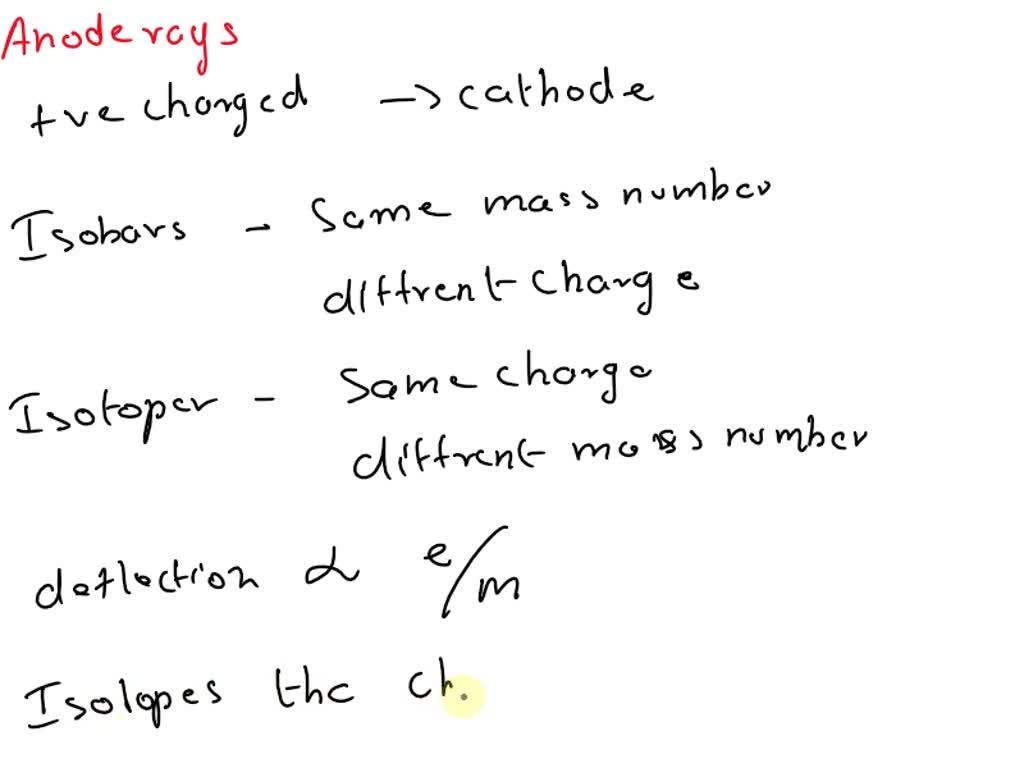 Anode rays
+ve charged → cathode
Isobars - Same mass number
diffrent charge
Isotoper - Same charge
diffrent mass number
deflection α e/m
Isolopes the ch